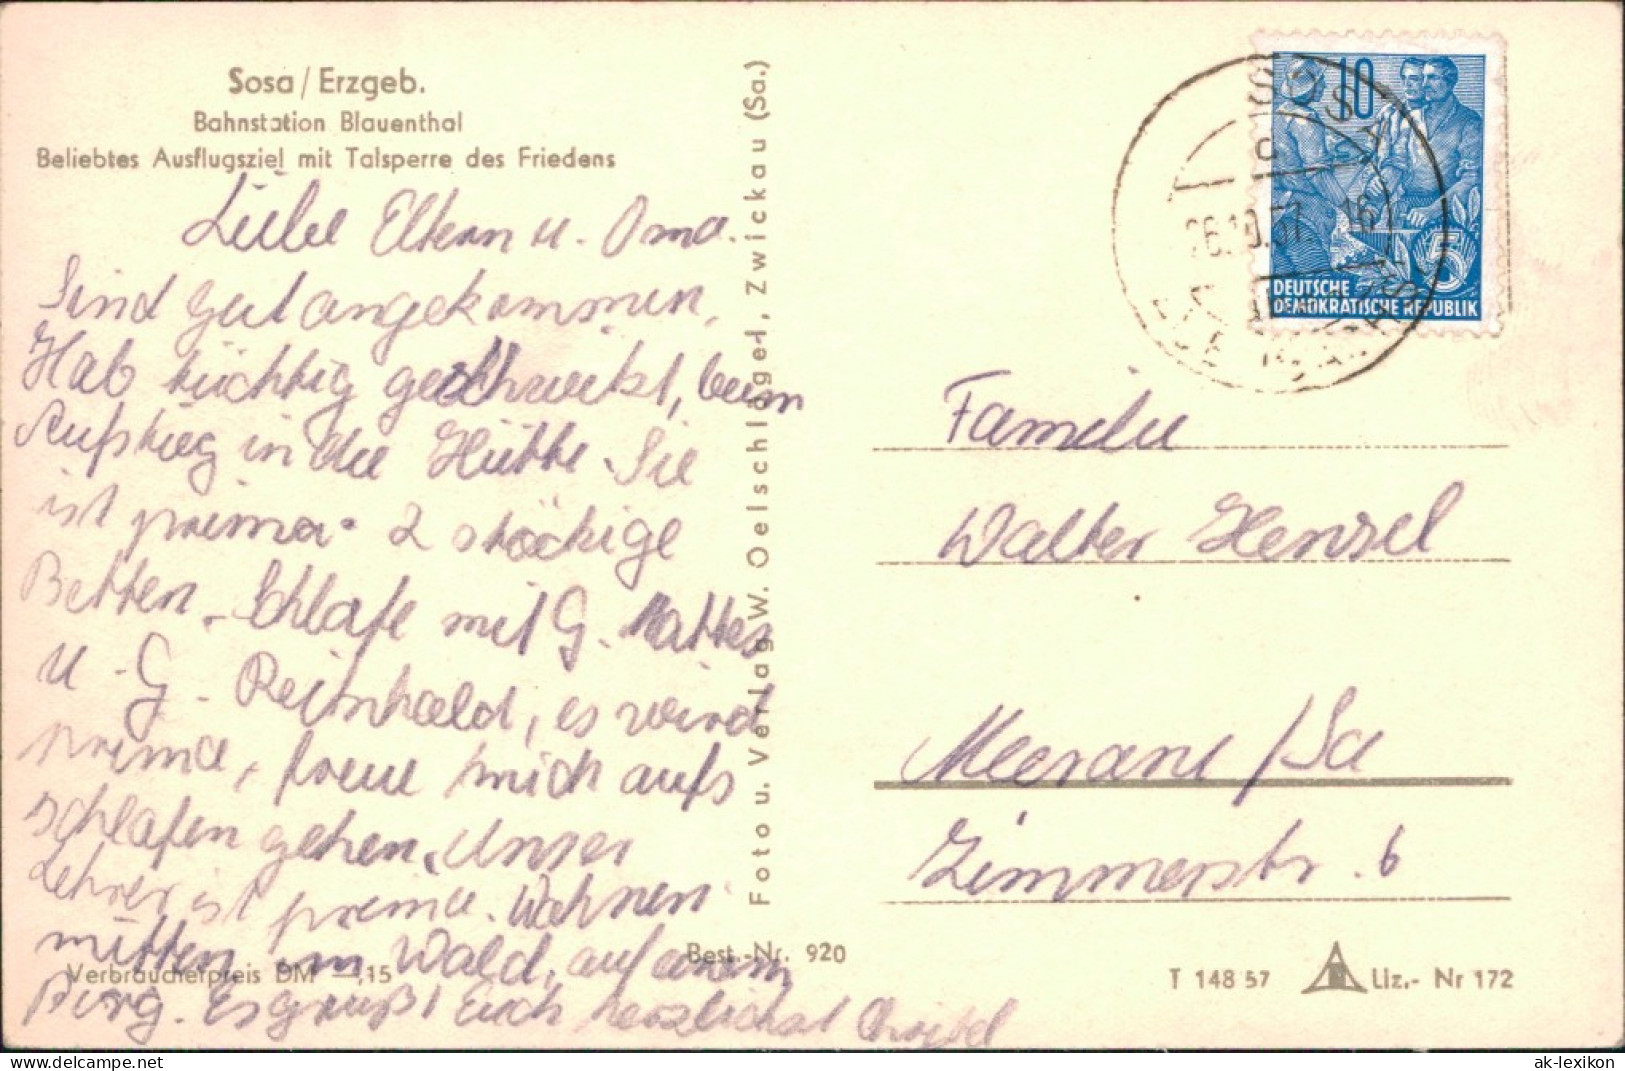 Sosa / Erzgeb.
Bahnstation Blauenthal
Beliebtes Ausflugsziel mit Talsperre des Friedens
Liebe Eltern u. Oma.
Sind gut angekommen.
Hab tüchtig geschwitzt, beim
Aufstieg in die Hütte. Sie
ist prima. 2 stöckige
Betten. Schlafe mit G. Mattes
u. G. Reinhold, es wird
prima, freue mich aufs
schlafen gehen. Unser
Lehrer ist prima. Wohnen
mitten im Wald, auf einem
Berg. Es grüßt Euch herzlichst
Verbraucherpreis DM —,15
Foto u. Verlag W. Oelschlägel, Zwickau (Sa.)
Best.-Nr. 920
SOSA
c
26.10.57. 16
10
5
DEUTSCHE
DEMOKRATISCHE REPUBLIK
Familie
Walter Henzel
Meerane / Sa
Zimmerstr. 6
T 148 57
Liz.- Nr 172
https://www.delcampe.net
ak-lexikon